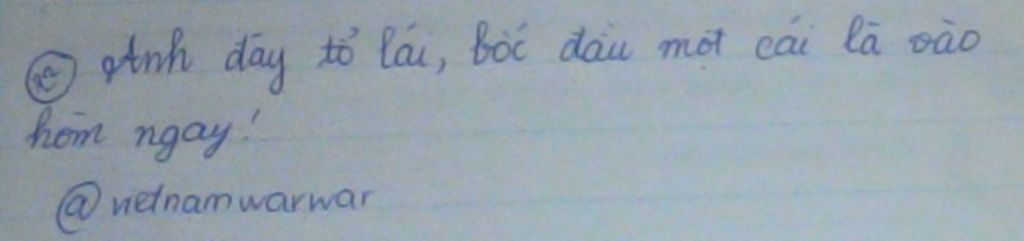 22 Anh đây tổ lái, bốc đầu một cái là vào
hòm ngay!
@vietnamwarwar